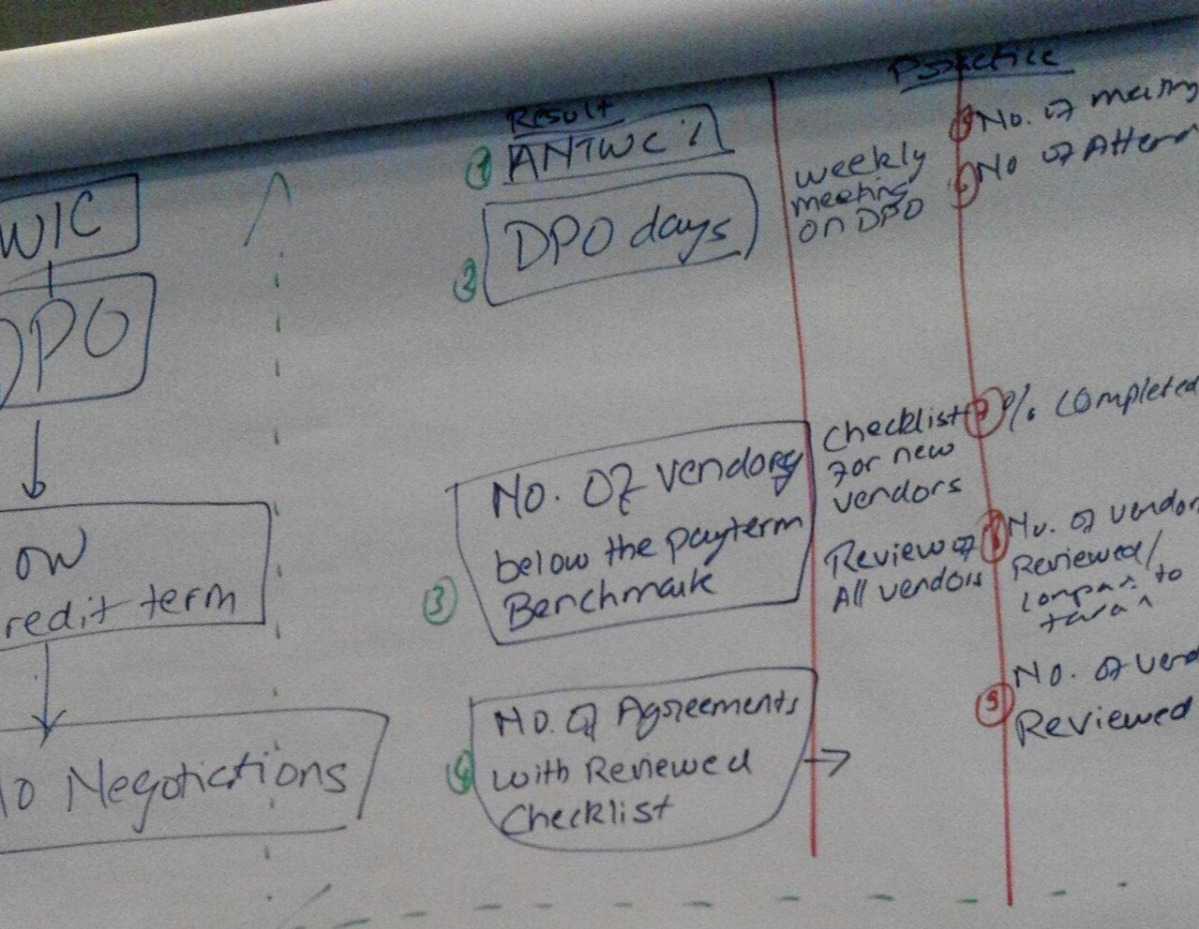 W/C
DPO
ow
redit term
No Negotiations
Result
① ANTWC %
② DPO days
③ No. Of vendors
below the payterm
Benchmark
④ No. Of Agreements
with Reviewed
Checklist
weekly
meeting
on DPO
Checklist
For new
vendors
Review of
All vendors
Practice
No. of meeting
No of Atten
% Completed
No. of vendor
Reviewed/
to
No. of vend
Reviewed